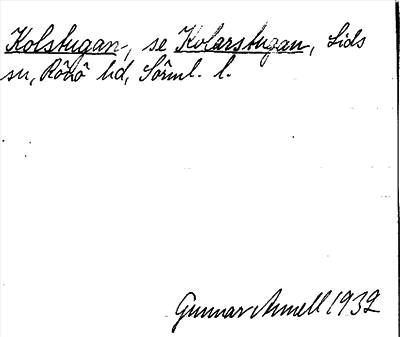 Kolstugan, se Kolarstugan, Lids
sn, Rönö hd, Sörml. l.
Gunnar Annell 1932